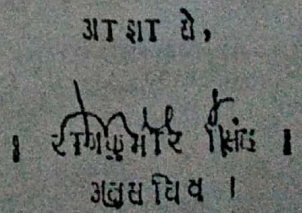 आज्ञा से,
। राजकुमार सिंह ।
अवर सचिव ।